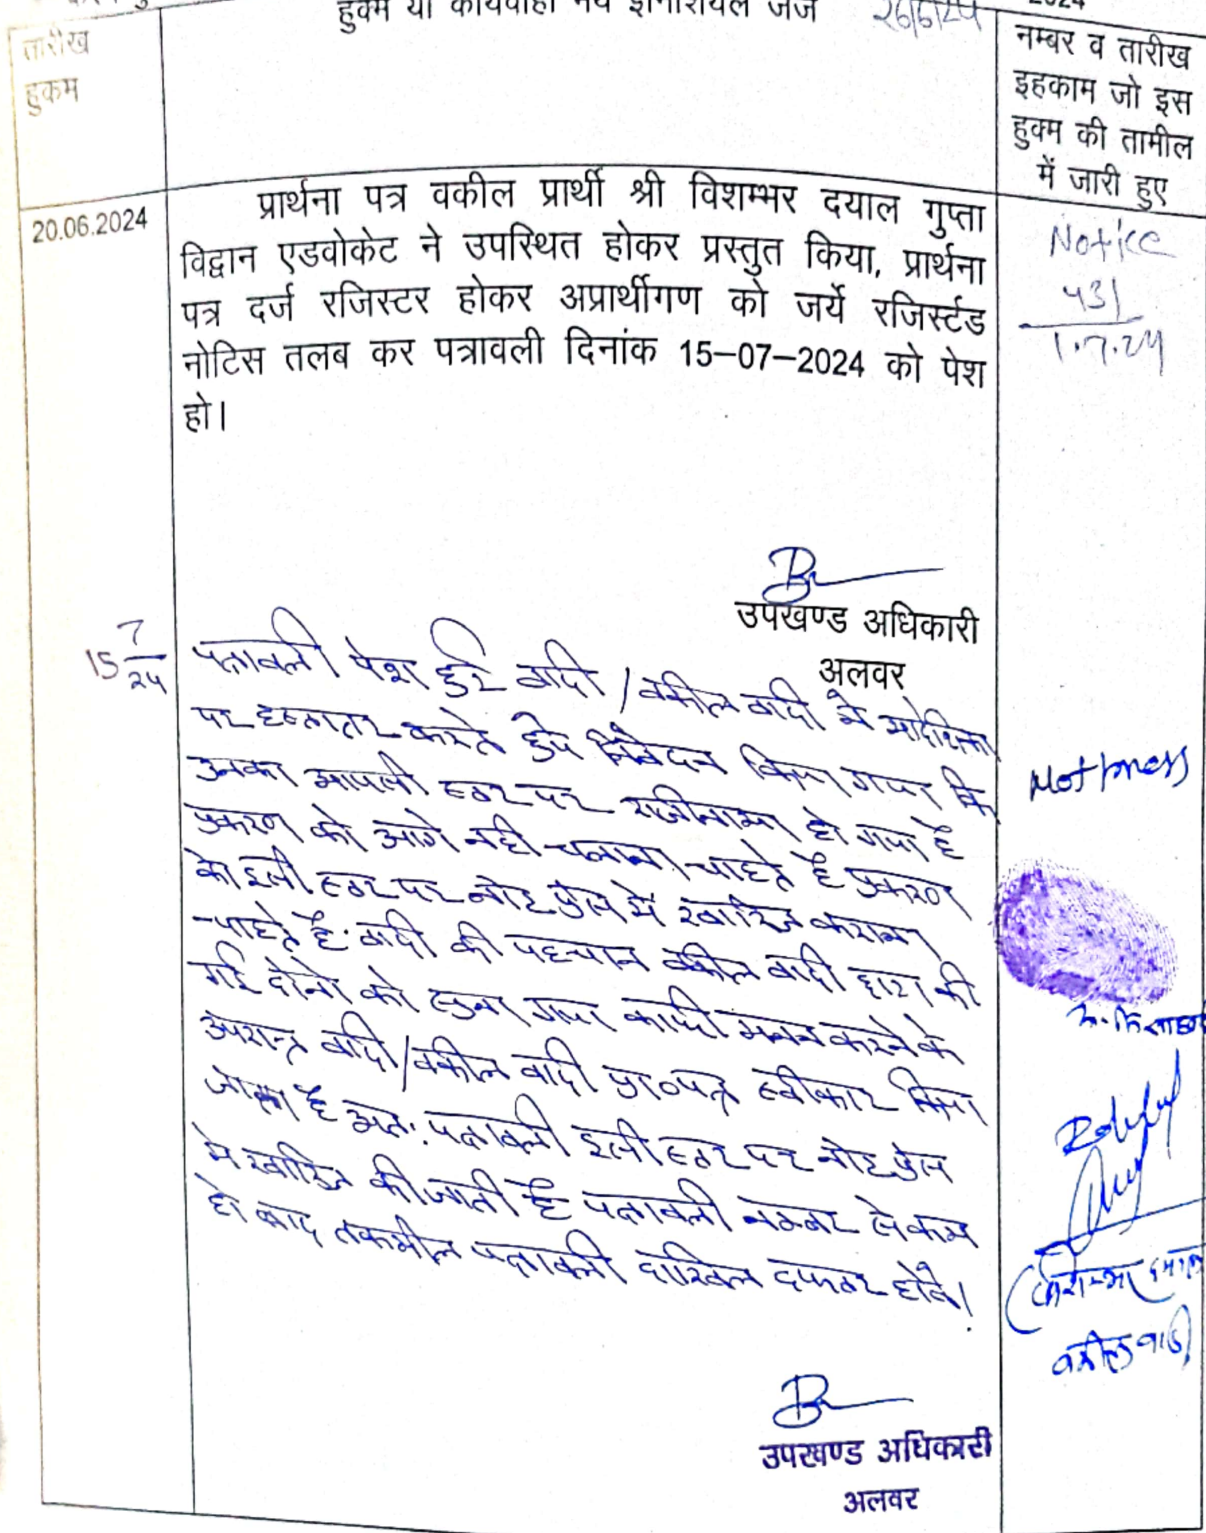 हुक्म या कार्यवाही मय इनीशियल जज 26/6/24
2024
तारीख
हुकम
नम्बर व तारीख
इहकाम जो इस
हुक्म की तामील
में जारी हुए
20.06.2024
प्रार्थना पत्र वकील प्रार्थी श्री विशम्भर दयाल गुप्ता
विद्वान एडवोकेट ने उपस्थित होकर प्रस्तुत किया, प्रार्थना
पत्र दर्ज रजिस्टर होकर अप्रार्थीगण को जर्ये रजिर्स्टड
नोटिस तलब कर पत्रावली दिनांक 15-07-2024 को पेश
हो।
Notice
431
1.7.24
उपखण्ड अधिकारी
अलवर
15 7/24
पत्रावली पेश हुई वादी / वकील वादी ने आदेशिका
पर हस्ताक्षर करते हुये निवेदन किया गया कि
उनका आपसी स्तर पर राजीनामा हो गया है
प्रकरण को आगे नही चलाना चाहते है प्रकरण
को इसी स्तर पर नोट प्रेस में खारिज कराना
चाहते है. वादी की पहचान वकील वादी द्वारा की
गई दोनो को सुना गया काफी मनन करने के
उपरान्त वादी/वकील वादी प्रा०पत्र स्वीकार किया
जाता है अतः पत्रावली इसी स्तर पर नोट प्रेस
मे खारिज की जाती है पत्रावली नम्बर से कम
हो बाद तकमील पत्रावली दाखिल दफ्तर होवे।
Not press
वकील वादी
उपखण्ड अधिकारी
अलवर